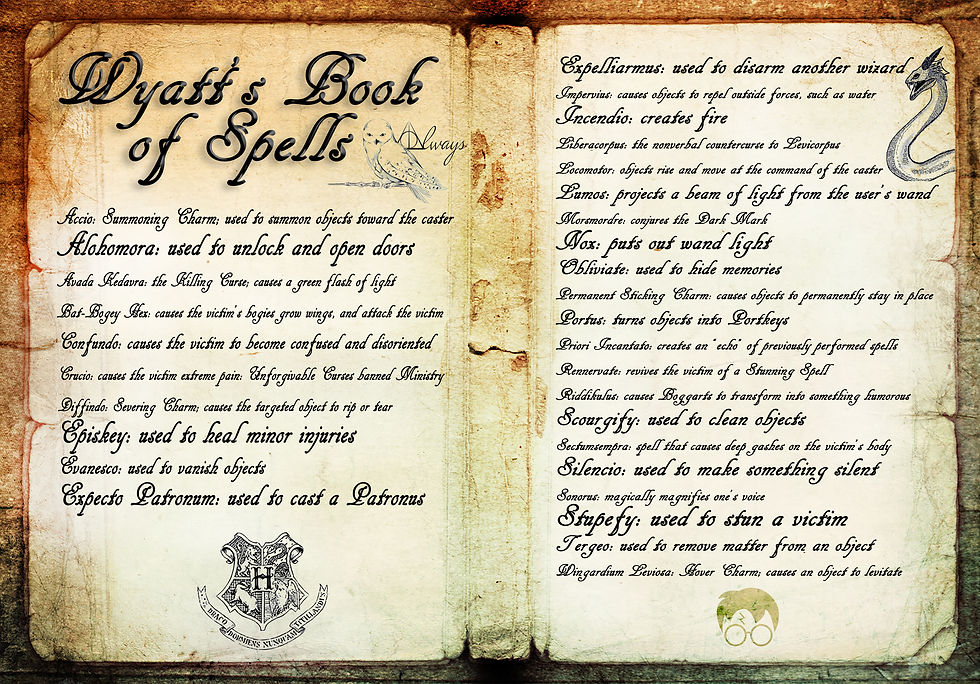 Wyatt's Book
of Spells
Always
Accio: Summoning Charm; used to summon objects toward the caster
Alohomora: used to unlock and open doors
Avada Kedavra: the Killing Curse; causes a green flash of light
Bat-Bogey Hex: causes the victim's bogies grow wings, and attack the victim
Confundo: causes the victim to become confused and disoriented
Crucio: causes the victim extreme pain: Unforgivable Curses banned Ministry
Diffindo: Severing Charm; causes the targeted object to rip or tear
Episkey: used to heal minor injuries
Evanesco: used to vanish objects
Expecto Patronum: used to cast a Patronus
H
DRACO DORMIENS NUNQUAM TITILLANDUS
Expelliarmus: used to disarm another wizard
Impervius: causes objects to repel outside forces, such as water
Incendio: creates fire
Liberacorpus: the nonverbal countercurse to Levicorpus
Locomotor: objects rise and move at the command of the caster
Lumos: projects a beam of light from the user's wand
Morsmordre: conjures the Dark Mark
Nox: puts out wand light
Obliviate: used to hide memories
Permanent Sticking Charm: causes objects to permanently stay in place
Portus: turns objects into Portkeys
Priori Incantato: creates an "echo" of previously performed spells
Rennervate: revives the victim of a Stunning Spell
Riddikulus: causes Boggarts to transform into something humorous
Scourgify: used to clean objects
Sectumsempra: spell that causes deep gashes on the victim's body
Silencio: used to make something silent
Sonorus: magically magnifies one's voice
Stupefy: used to stun a victim
Tergeo: used to remove matter from an object
Wingardium Leviosa: Hover Charm; causes an object to levitate